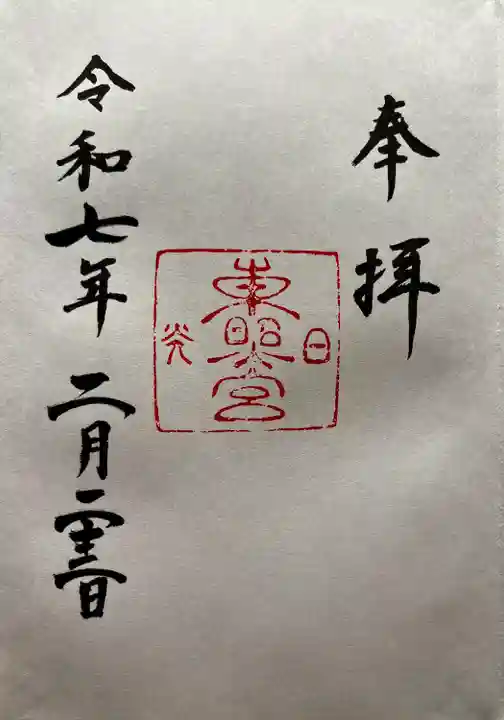 奉拝
日
東照宮
光
令和七年二月二十三日